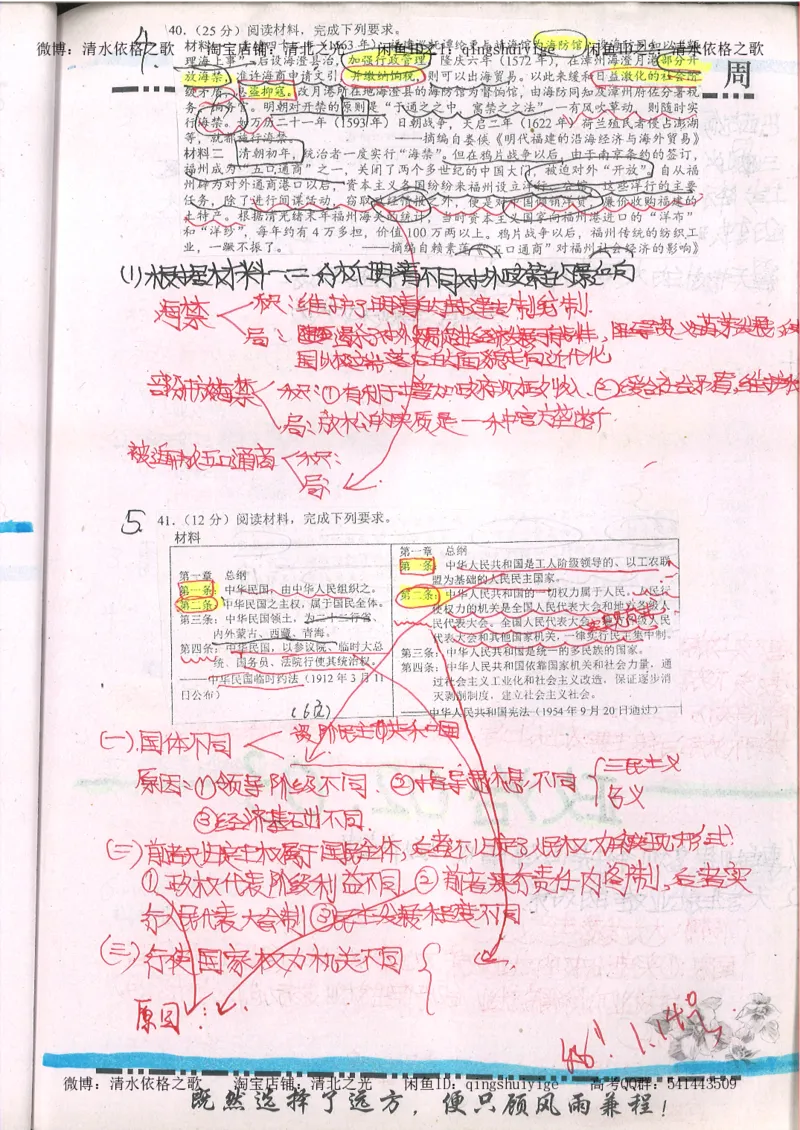 4.
40.（25 分）阅读材料，完成下列要求。
微博：清水依格之歌 淘宝店铺：清北之光 闲鱼ID：qingshuiyige
周
理海上事”，后设海澄县治，加强行政管理。隆庆六年（1572 年），在漳州海澄月港部分开
放海禁，准许海商申请文引，并缴纳饷税，则可以出海贸易。以此来缓和日益激化的社会阶
级矛盾，息盗抑寇。改月港所在地海澄县的海防馆为督饷馆，由海防同知及漳州府佐分署税
务，饷务官。明朝对开禁的原则是“于通之之中，寓禁之之法”，一有风吹草动，则随时实
行海禁。如万历二十一年（1593 年）日朝战争，天启二年（1622 年）荷兰殖民者侵占澎湖
等，就都施行海禁。 ——摘编自娄佚《明代福建的沿海经济与海外贸易》
材料二 清朝初年，统治者一度实行“海禁”。但在鸦片战争以后，由于南京条约的签订，
福州成为“五口通商”之一，关闭了两个多世纪的中国大门，被迫对外“开放”。自从福
州辟为对外通商港口以后，资本主义各国纷纷来福州设立洋行、分馆，这些洋行的主要
任务，除了进行间谍活动，窃取政经情报之外，便是对中国倾销洋货，廉价收购福建的
土特产。根据清光绪末年福州海关的统计，当时资本主义国家向福州港进口的“洋布”
和“洋纱”，每年约有 4 万多担，价值 100 万两以上。鸦片战争以后，福州传统的纺织工
业，一蹶不振了。 ——摘编自赖素莲《“五口通商”对福州社会经济的影响》
(1) 根据材料一、二 分析明清不同对外政策的影响
海禁 积：维护了明清的封建专制统制.
局：
国以极端落后的面貌走向近代化
部分开放海禁 积：①有利于增加政府财政收入、②缓和社会矛盾，维护
局：放松的实质是一种官方垄断
被迫开放五口通商 积：
局：
5. 41.（12 分）阅读材料，完成下列要求。
材料
第一章 总纲
第一条：中华民国，由中华人民组织之。
第二条：中华民国之主权，属于国民全体。
第三条：中华民国领土，为二十二行省、
内外蒙古、西藏、青海。
第四条：中华民国，以参议院、临时大总
统、国务员、法院行使其统治权。
——中华民国临时约法（1912 年 3 月 11
日公布）
第一章 总纲
第一条：中华人民共和国是工人阶级领导的、以工农联
盟为基础的人民民主国家。
第二条：中华人民共和国的一切权力属于人民。人民行
使权力的机关是全国人民代表大会和地方各级人
民代表大会。全国人民代表大会、地方各级人民
代表大会和其他国家机关，一律实行民主集中制。
第三条：中华人民共和国是统一的多民族的国家。
第四条：中华人民共和国依靠国家机关和社会力量，通
过社会主义工业化和社会主义改造，保证逐步消
灭剥削制度，建立社会主义社会。
——中华人民共和国宪法（1954 年 9 月 20 日通过）
(一).国体不同 资阶民主共和国
原因：①领导阶级不同 ②指导思想不同 三民主义
③经济基础不同.
(二) 前者只规定主权属于国民全体，后者还规定了人民权力的实现形式.
①政权代表阶级利益不同 ②前者实行责任内阁制，后者实
行人民代表大会制 ③民主发展程度不同
(三) 行使国家权力机关不同
原因：
微博：清水依格之歌 淘宝店铺：清北之光 闲鱼ID：qingshuiyige 高考QQ群：541443509
既然选择了远方，便只顾风雨兼程！